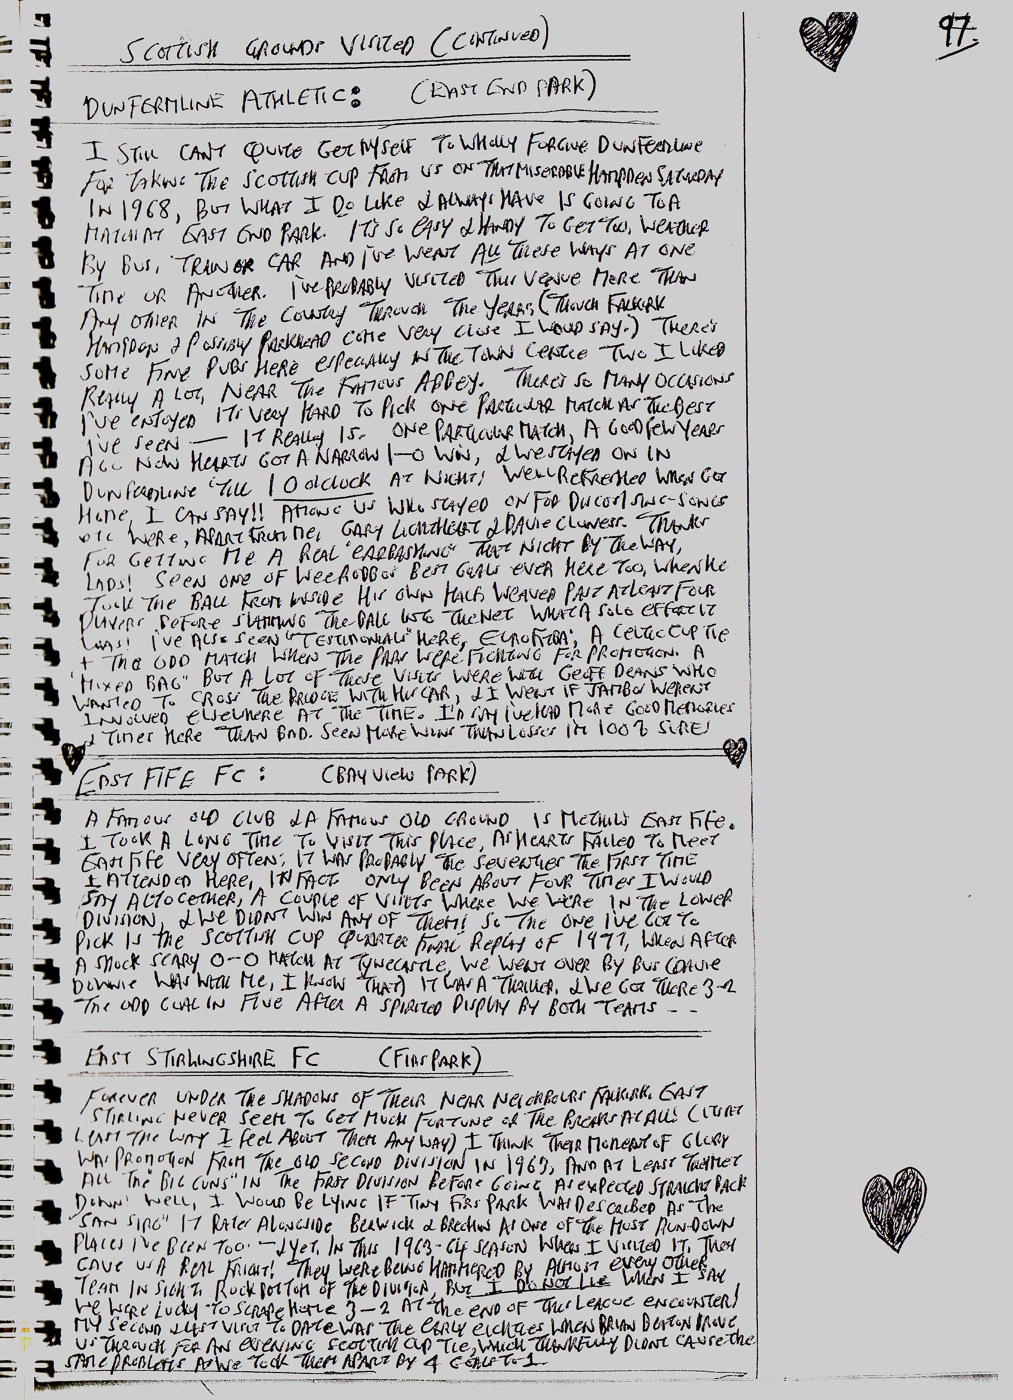 97.
SCOTTISH GROUNDS VISITED (CONTINUED)
DUNFERMLINE ATHLETIC: (EAST END PARK)
I STILL CAN'T QUITE GET MYSELF TO WHOLLY FORGIVE DUNFERMLINE
FOR TAKING THE SCOTTISH CUP FROM US ON THAT MISERABLE HAMPDEN SATURDAY
IN 1968, BUT WHAT I DO LIKE & ALWAYS HAVE IS GOING TO A
MATCH AT EAST END PARK. IT'S SO EASY & HANDY TO GET TOO, WEATHER
BY BUS, TRAIN OR CAR AND I'VE WENT ALL THESE WAYS AT ONE
TIME OR ANOTHER. I'VE PROBABLY VISITED THIS VENUE MORE THAN
ANY OTHER IN THE COUNTRY THROUGH THE YEARS, (THOUGH FALKIRK
HAMPDEN & POSSIBLY PARKHEAD COME VERY CLOSE I WOULD SAY.) THERE'S
SOME FINE PUBS HERE ESPECIALLY IN THE TOWN CENTRE TWO I LIKED
REALLY A LOT, NEAR THE FAMOUS ABBEY. THERE'S SO MANY OCCASIONS
I'VE ENJOYED ITS VERY HARD TO PICK ONE PARTICULAR MATCH AS THE BEST
I'VE SEEN — IT REALLY IS. ONE PARTICULAR MATCH, A GOOD FEW YEARS
AGO NOW HEARTS GOT A NARROW 1-0 WIN, & WE STAYED ON IN
DUNFERMLINE 'TILL 10 O'CLOCK AT NIGHT! WELL REFRESHED WHEN GOT
HOME, I CAN SAY!! AMONG US WHO STAYED ON FOR DISCO/SING-SONGS
ETC WERE, APART FROM ME, GARY LIGHTHEART & DAVIE CLUNESS. THANKS
FOR GETTING ME A REAL "EARBASHING" THAT NIGHT BY THE WAY,
LADS! SEEN ONE OF WEE ROBBO'S BEST GOALS EVER HERE TOO, WHEN HE
TOOK THE BALL FROM INSIDE HIS OWN HALF, WEAVED PAST AT LEAST FOUR
PLAYERS BEFORE SLAMMING THE BALL INTO THE NET WHAT A SOLO EFFORT IT
WAS! I'VE ALSO SEEN "TESTIMONIALS" HERE, A CELTIC CUP TIE
+ THE ODD MATCH WHEN THE PARS WERE FIGHTING FOR PROMOTION. A
"MIXED BAG" BUT A LOT OF THOSE VISITS WERE WITH GEOFF DEANS WHO
WANTED TO CROSS THE BRIDGE WITH HIS CAR, & I WENT IF JAMBOS WEREN'T
INVOLVED ELSEWHERE AT THE TIME. I'D SAY I'VE HAD MORE GOOD MEMORIES
& TIMES HERE THAN BAD. SEEN MORE WINS THAN LOSSES I'M 100% SURE!
EAST FIFE FC: (BAYVIEW PARK)
A FAMOUS OLD CLUB & A FAMOUS OLD GROUND IS METHIL'S EAST FIFE.
I TOOK A LONG TIME TO VISIT THIS PLACE, AS HEARTS FAILED TO MEET
EAST FIFE VERY OFTEN, IT WAS PROBABLY THE SEVENTIES THE FIRST TIME
I ATTENDED HERE, IN FACT ONLY BEEN ABOUT FOUR TIMES I WOULD
SAY ALTOGETHER, A COUPLE OF VISITS WHERE WE WERE IN THE LOWER
DIVISION, & WE DIDN'T WIN ANY OF THEM! SO THE ONE I'VE GOT TO
PICK IS THE SCOTTISH CUP QUARTER FINAL REPLAY OF 1977, WHEN AFTER
A SHOCK SCARY 0-0 MATCH AT TYNECASTLE, WE WENT OVER BY BUS (DAVIE
DOWNIE WAS WITH ME, I KNOW THAT) IT WAS A THRILLER, & WE GOT THERE 3-2
THE ODD GOAL IN FIVE AFTER A SPIRITED DISPLAY BY BOTH TEAMS --
EAST STIRLINGSHIRE FC (FIRS PARK)
FOREVER UNDER THE SHADOWS OF THEIR NEAR NEIGHBOURS FALKIRK, EAST
STIRLING NEVER SEEM TO GET MUCH FORTUNE OR THE BREAKS AT ALL! (IT'S AT
LEAST THE WAY I FEEL ABOUT THEM ANYWAY) I THINK THEIR MOMENT OF GLORY
WAS PROMOTION FROM THE OLD SECOND DIVISION IN 1963, AND AT LEAST THEY MET
ALL THE "BIG GUNS" IN THE FIRST DIVISION BEFORE GOING AS EXPECTED STRAIGHT BACK
DOWN! WELL, I WOULD BE LYING IF TINY FIRS PARK WAS DESCRIBED AS THE
"SAN SIRO" IT RATES ALONGSIDE BERWICK & BRECHIN AS ONE OF THE MOST RUN-DOWN
PLACES I'VE BEEN TOO — & YET, IN THIS 1963-64 SEASON WHEN I VISITED IT, THEY
GAVE US A REAL FRIGHT! THEY WERE BEING HAMMERED BY ALMOST EVERY OTHER
TEAM IN SIGHT, ROCK BOTTOM OF THE DIVISION, BUT I DO NOT LIE WHEN I SAY
WE WERE LUCKY TO SCRAPE HOME 3-2 AT THE END OF THIS LEAGUE ENCOUNTER!
MY SECOND & LAST VISIT TO DATE WAS THE EARLY EIGHTIES WHEN BRIAN DEATON DROVE
US THROUGH FOR AN EVENING SCOTTISH CUP TIE, WHICH THANKFULLY DIDN'T CAUSE THE
SAME PROBLEMS AS WE TOOK THEM APART BY 4 GOALS TO 1.